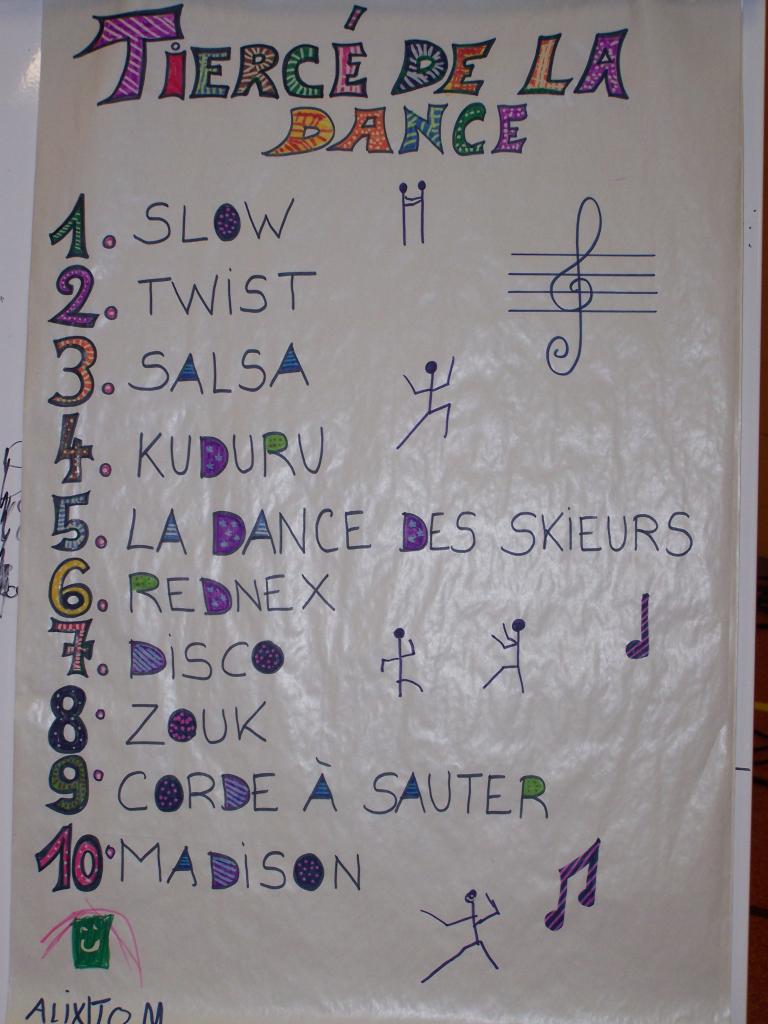 TiERCÉ DE LA
DANCE
1. SLOW
2. TWiST
3. SALSA
4. KUDURU
5. LA DANCE DES SKiEURS
6. REDNEX
7. DiSCO
8. ZOUK
9. CORDE À SAUTER
10. MADiSON